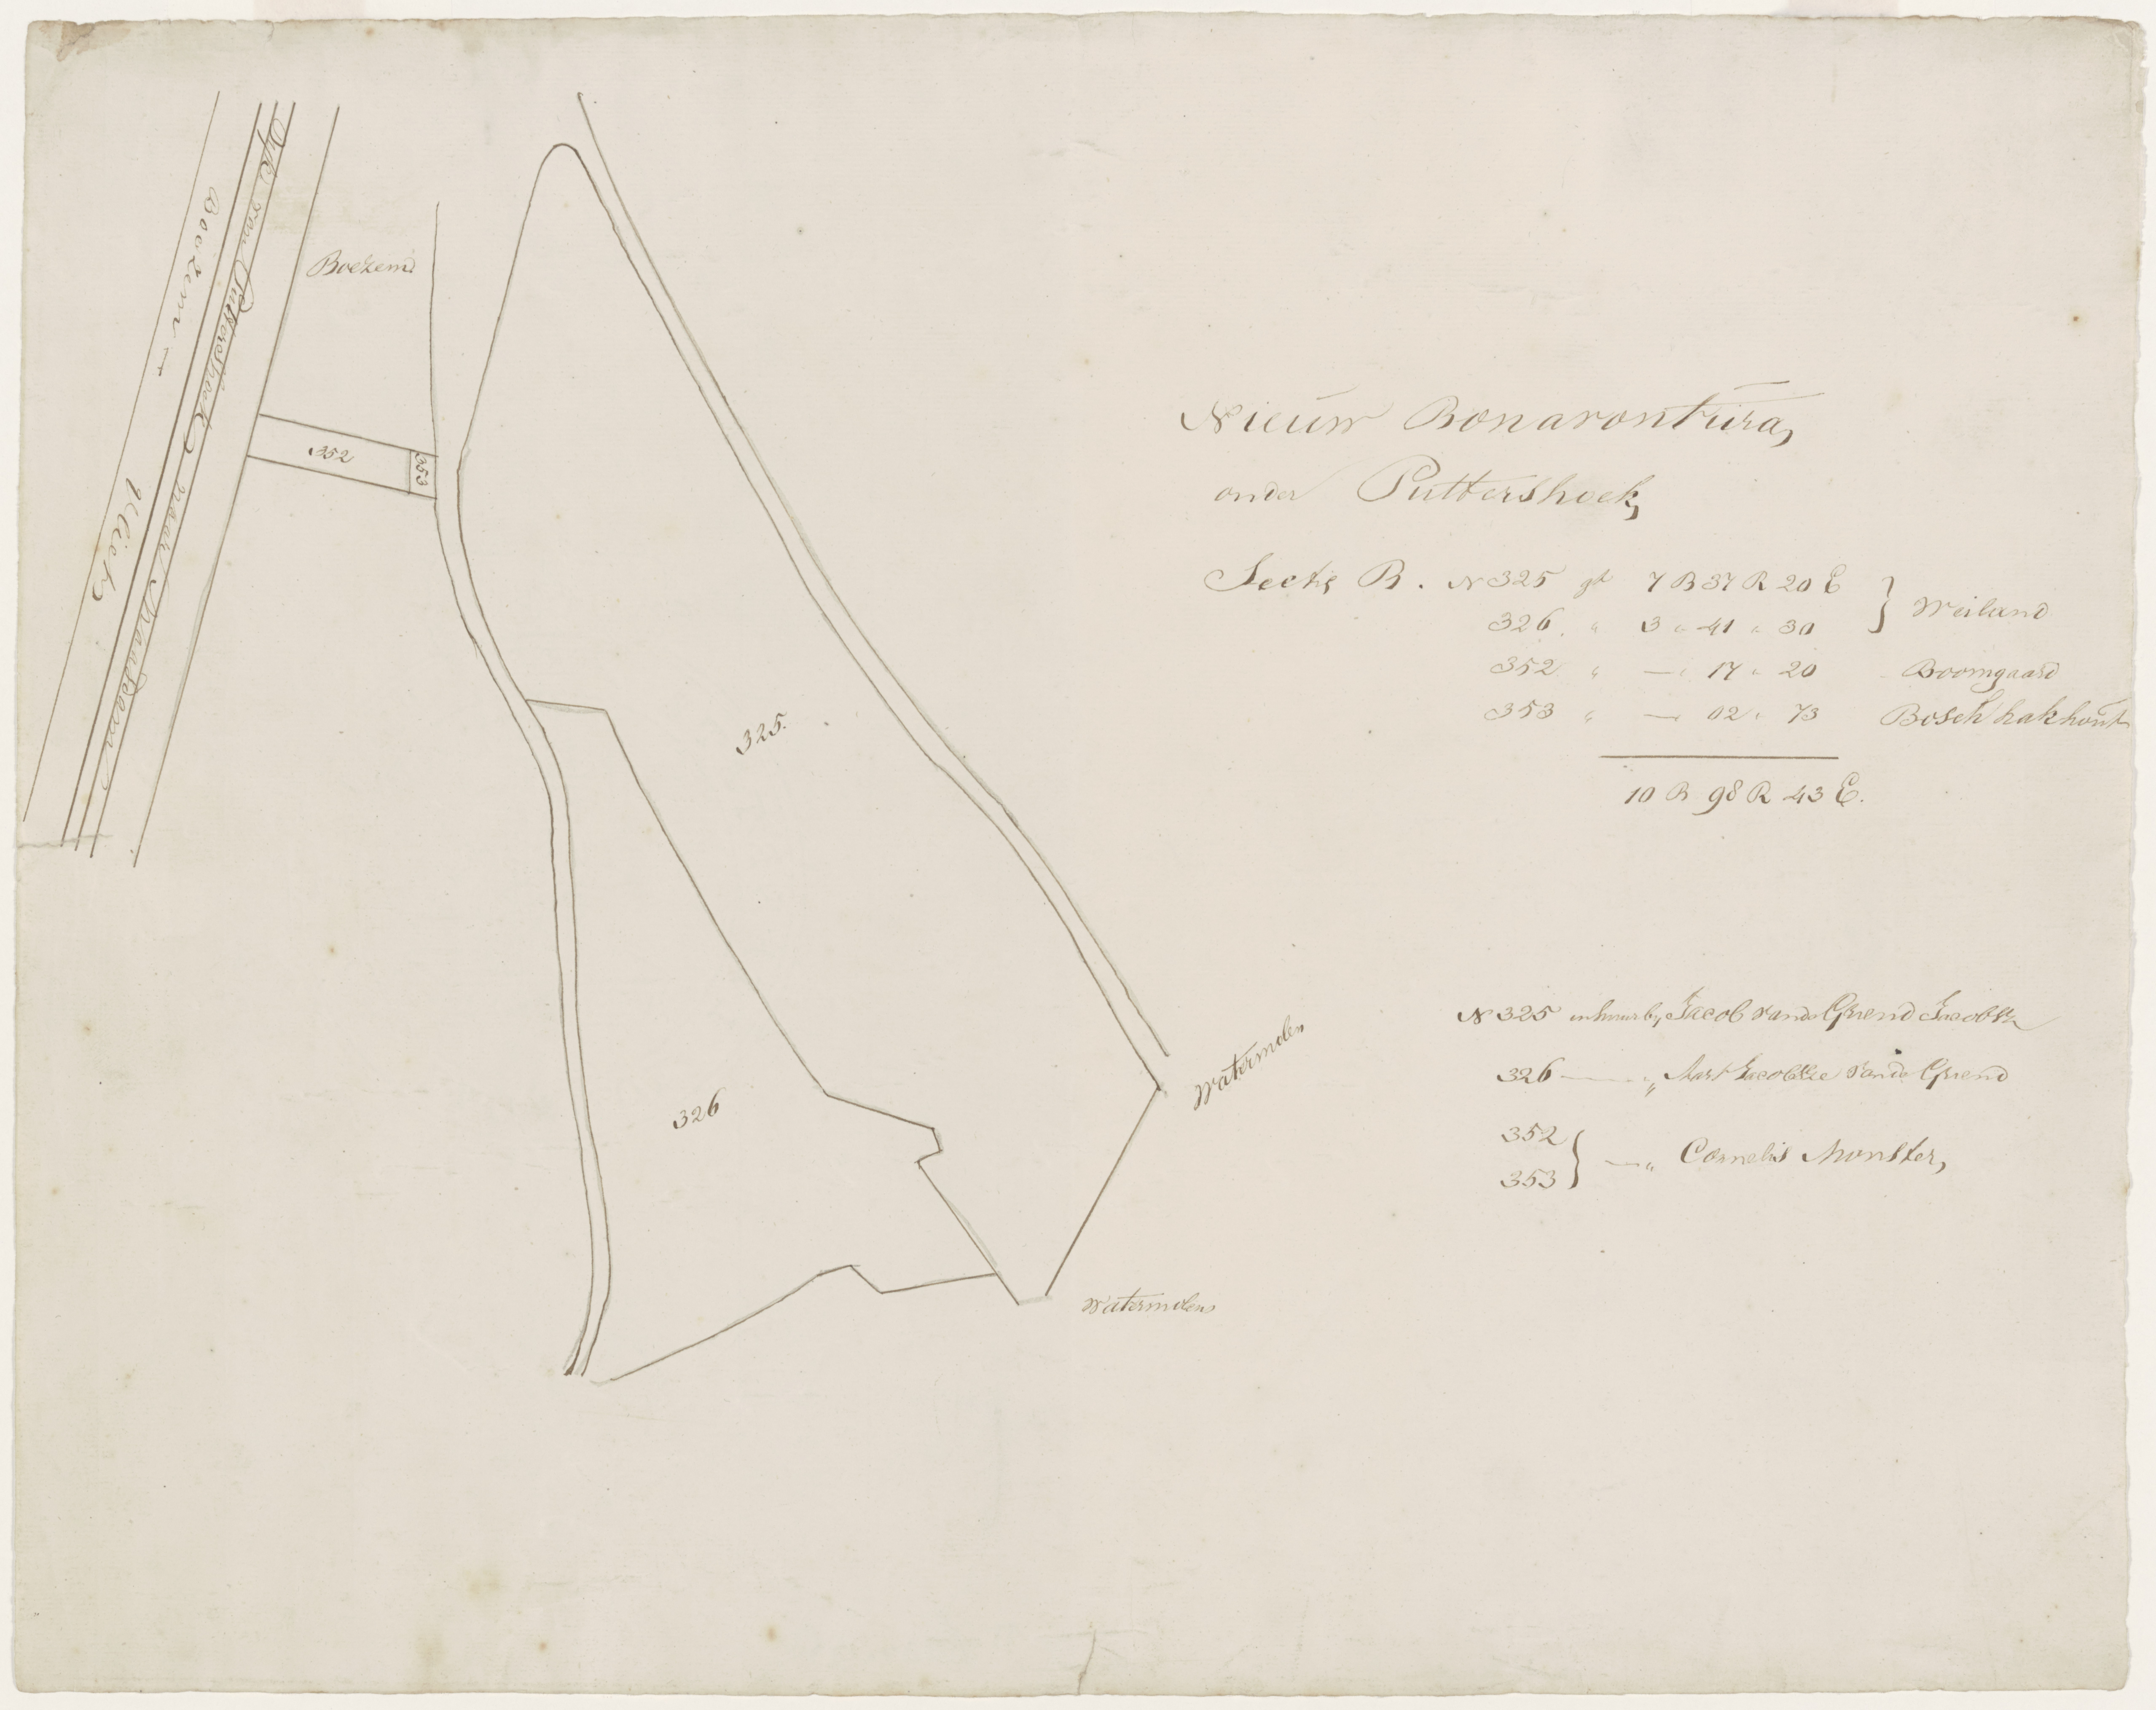 Dijk van Puttershoek naar Maasdam
Boezem
Vliet
Boezem
352
353
325.
326
Watermolen
Watermolen
Nieuw Bonavontura,
onder Puttershoek,
Sectie B. N 325 gt 7 B 37 R 20 E } Weiland
326. " 3 " 41 " 30
352 " — " 17 " 20 Boomgaard
353 " — " 02 " 73 Bosch hakhout
10 B 98 R 43 E.
N 325 in huur by Jacob vande Griend Jacobsz
326 — " Aart Jacobsze vande Griend
352
} — " Cornelis Monster,
353